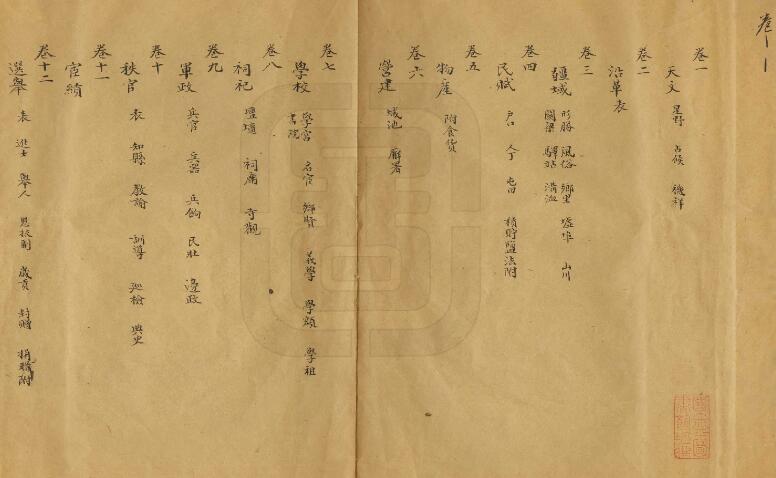 卷一
天文 星野 占候 禨祥
卷二
沿革表
卷三
疆域 形勝 風俗 鄉里 墟埠 山川
關梁 驛站 溝洫
卷四
民賦 户口 人丁 屯田 積貯鹽法附
卷五
物產 附食貨
卷六
營建 城池 廨署
卷七
學校 學宮 名宦 鄉賢 義學 學額 學租
書院
卷八
祠祀 壇壝 祠廟 寺觀
卷九
軍政 兵官 兵器 兵餉 民壯 邊政
卷十
秩官 表 知縣 教諭 訓導 巡檢 典史
卷十一
宦績
卷十二
選舉 表 進士 舉人 恩拔副 歲貢 封贈 捐職附